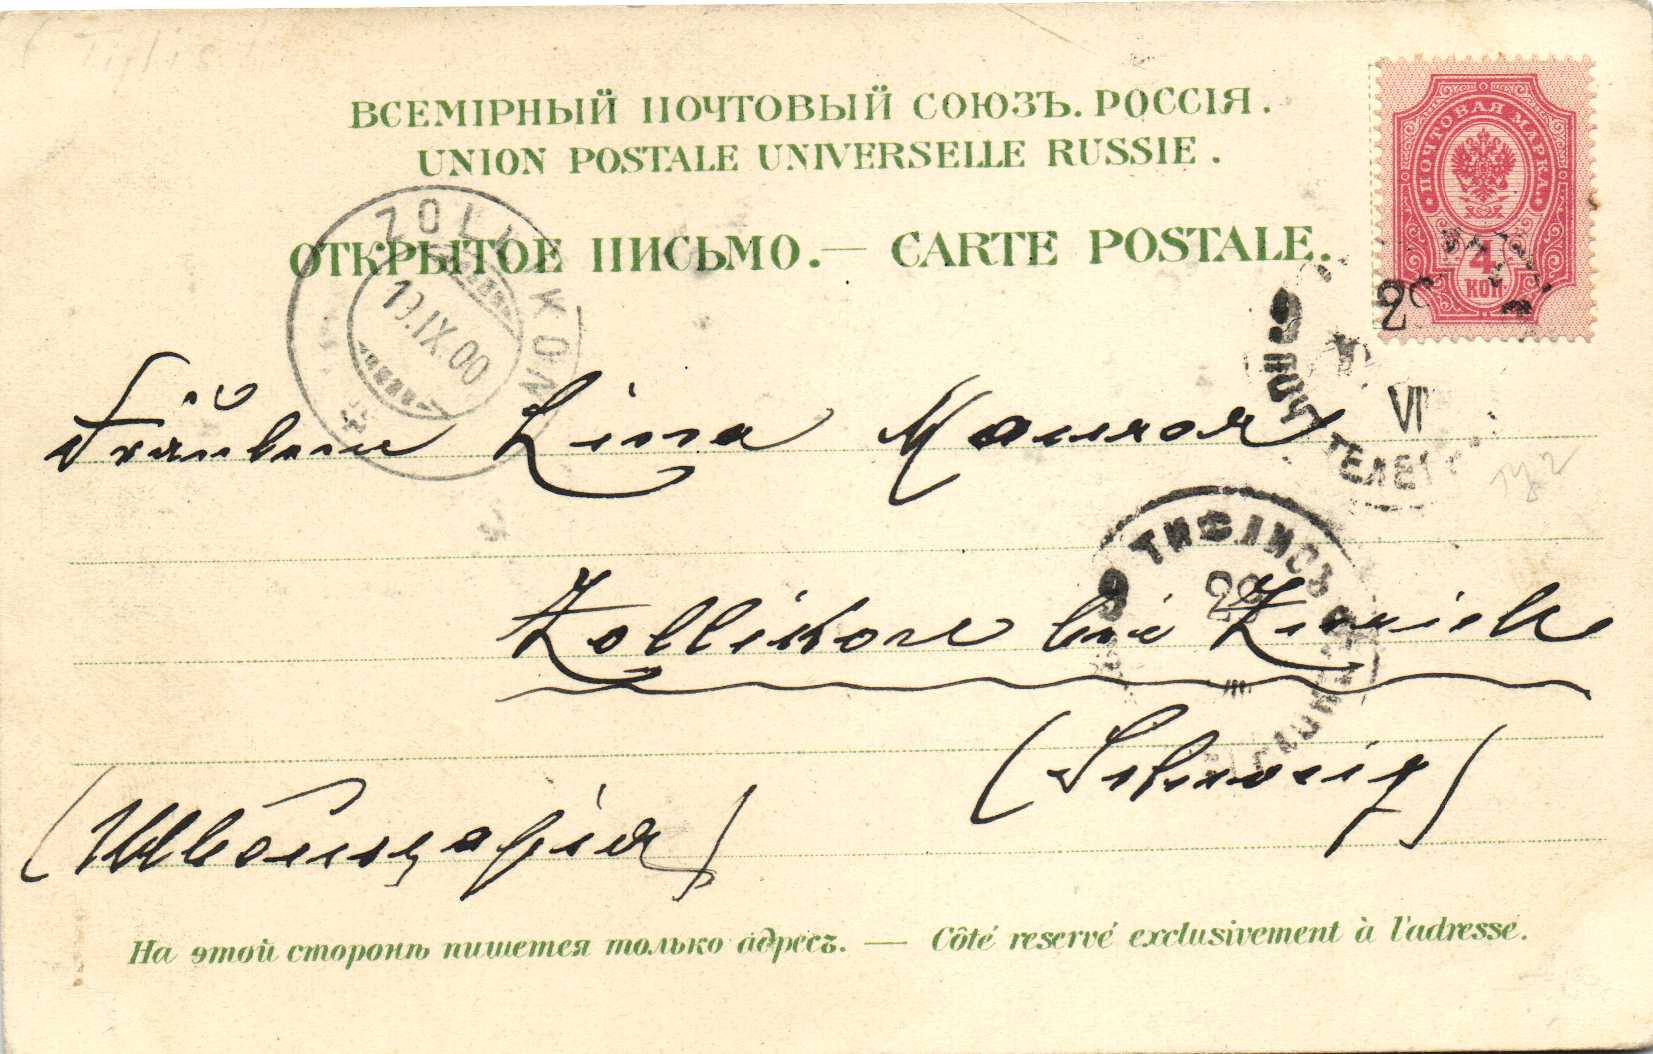 Tiflis
ВСЕМІРНЫЙ ПОЧТОВЫЙ СОЮЗЪ. РОССІЯ.
UNION POSTALE UNIVERSELLE RUSSIE.
ОТКРЫТОЕ ПИСЬМО.— CARTE POSTALE.
ПОЧТОВАЯ МАРКА
4
КОП
ZOLLIKON
19.IX.00
VI
ТЕЛЕГ
Fräulein Lina Maurer
ТИФЛИСЪ
Zollikon bei Zürich
(Schweiz)
(Швейцарія)
На этой сторонѣ пишется только адресъ. — Côté reservé exclusivement à l'adresse.